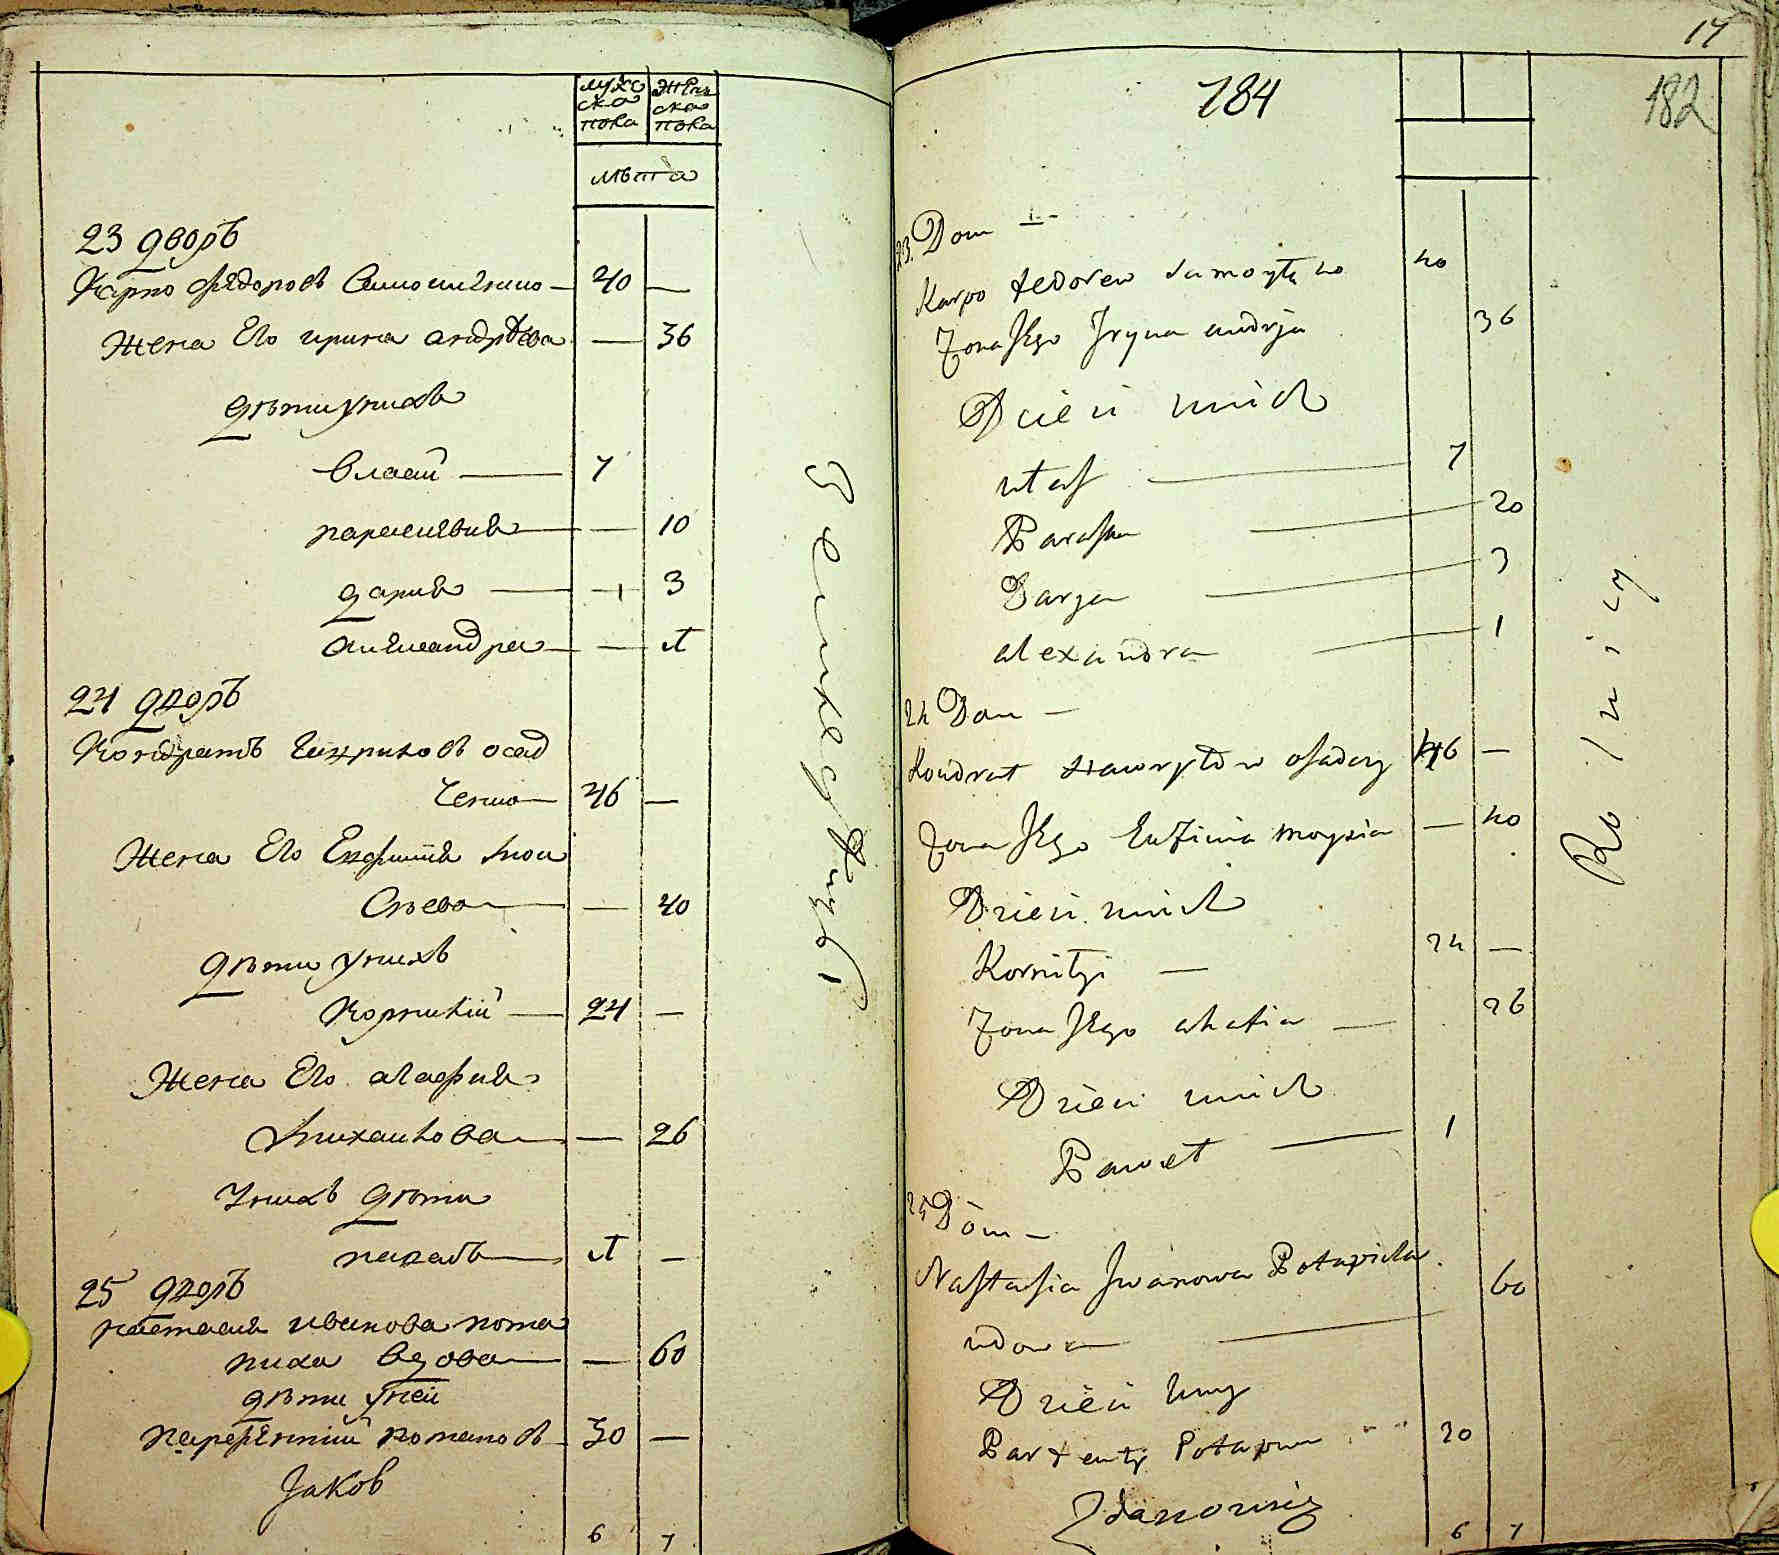 мужс
ска
пола
женс
ска
пола
лѣта
23 дворъ
Карпо Фядоровъ 40 —
Жена Его ирина андрѣева — 36
дѣти у нихъ
власий — 7
парасковия — — 10
дария — — 3
александра — — 1
24 дворъ
Кондратъ Гавриловъ осад
чено — 46 —
Жена Его Евфимия мои
сѣева — — 40
дѣти у нихъ
Корнилий — 24 —
Жена Его агафия
михаилова — — 26
У нихъ дѣти
павалъ — 1 —
25 дворъ
настасия иванова пота
пиха вдова — — 60
дѣти у ней
парфѣнтий потаповъ 30 —
Jakob
6 7
17
184
182
23. Dom —
Karpo Fedorow 40
Zona Jego Iryna andrja 36
Dzieci u nich
włas — 7
Paraska — 10
Darja — 3
alexandra — 1
24 Dom —
Kondrat Hawryłow osadczy 46 —
Zona Jego Eufimia moysia — 40
Dzieci u nich
Korniły — 24 —
Zona Jego ahafia — 26
Dzieci u nich
Paweł — 1
25 Dom —
Nastasia Iwanowa Potapicha 60
wdowa —
Dzieci u niey
Parfenty Potapow 30
6 7
Rolnicy